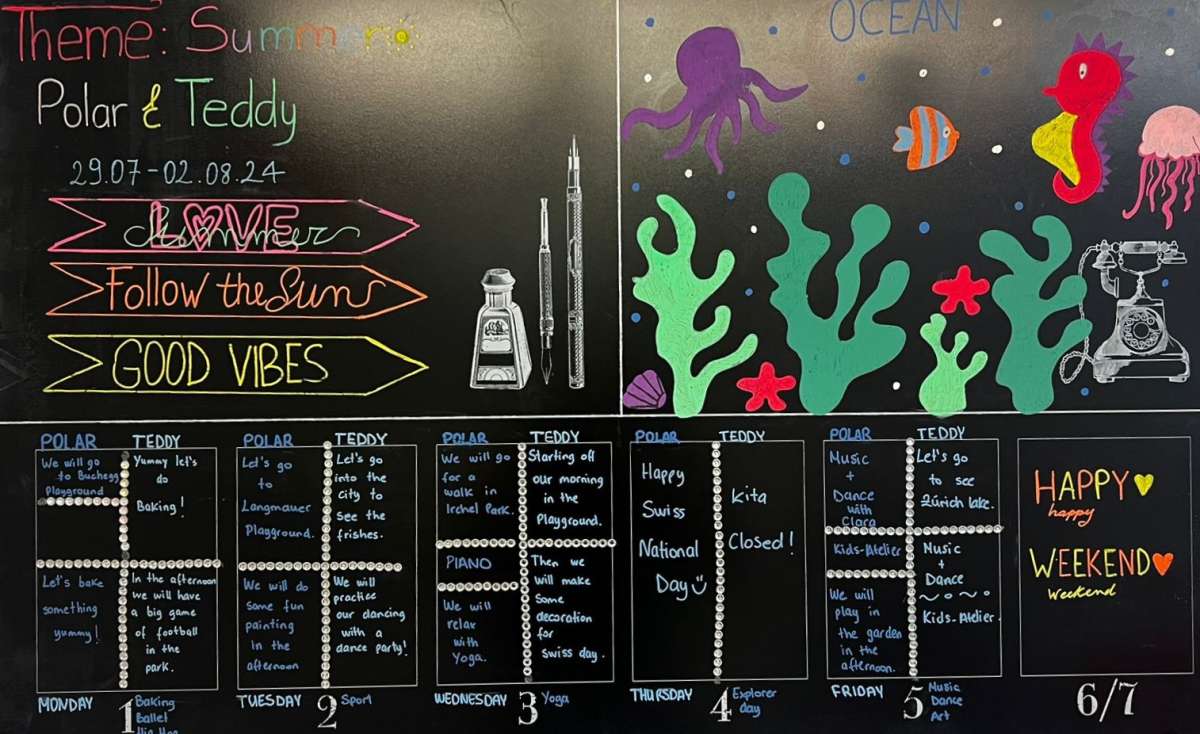 Theme: Summer
Polar & Teddy
29.07-02.08.24
LOVE
Summer
Follow the Sun
GOOD VIBES
OCEAN
POLAR
We will go
to Buchegg
Playground
Let's bake
something
yummy!
TEDDY
Yummy let's
do
Baking!
In the afternoon
we will have
a big game
of football
in the
park.
MONDAY
1
Baking
Ballet
Hip Hop
POLAR
Let's go
to
Langmauer
Playground.
We will do
some fun
painting
in the
afternoon
TEDDY
Let's go
into the
city to
see the
frishes.
We will
practice
our dancing
with a
dance party!
TUESDAY
2
Sport
POLAR
We will go
for a
walk in
Irchel Park.
PIANO
We will
relax
with
Yoga.
TEDDY
Starting off
our morning
in the
Playground.
Then we
will make
some
decoration
for
Swiss day.
WEDNESDAY
3
Yoga
POLAR
Happy
Swiss
National
Day
TEDDY
Kita
Closed!
THURSDAY
4
Explorer
day
POLAR
Music
+
Dance
with
Clara
Kids-Atelier
We will
play in
the garden
in the
afternoon.
TEDDY
Let's go
to see
Zürich lake.
Music
+
Dance
Kids-Atelier.
FRIDAY
5
Music
Dance
Art
HAPPY
happy
WEEKEND
Weekend
6/7